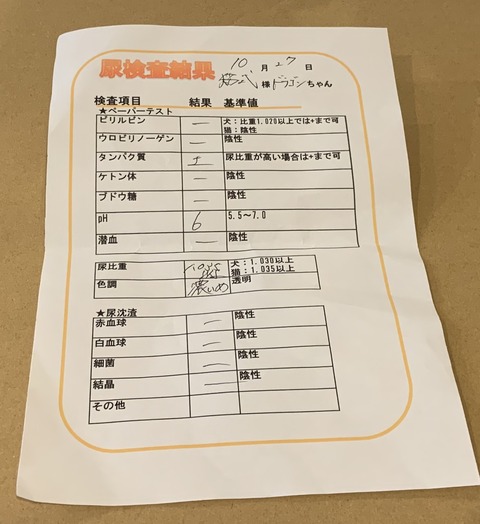 尿検査結果 10月27日
様 ドラゴンちゃん
検査項目 結果 基準値
★ペーパーテスト
ビリルビン － 犬：比重1.020以上では+まで可
猫：陰性
ウロビリノーゲン － 陰性
タンパク質 ± 尿比重が高い場合は+まで可
ケトン体 － 陰性
ブドウ糖 － 陰性
pH 6 5.5～7.0
潜血 － 陰性
尿比重 犬：1.030以上
猫：1.035以上
色調 濃いめ 透明
★尿沈渣
赤血球 － 陰性
白血球 － 陰性
細菌 － 陰性
結晶 － 陰性
その他